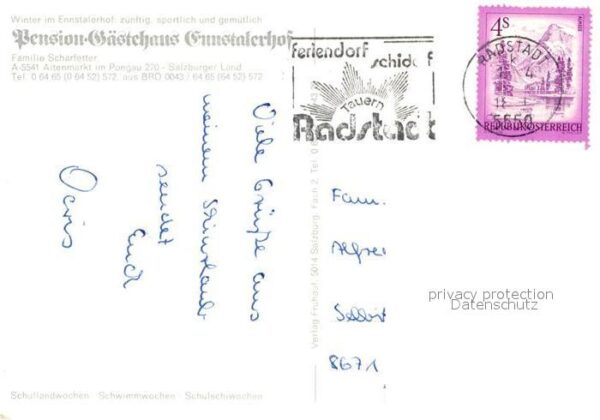 Winter im Ennstalerhof: zünftig, sportlich und gemütlich
Pension-Gästehaus Ennstalerhof
Familie Scharfetter
A-5541 Altenmarkt im Pongau 270 - Salzburger Land
Tel. 0 64 65 (0 64 52) 572, aus BRD 0043 / 64 65 (64 52) 572
Viele Grüße aus
meinem Skiurlaub
sendet
Euch
Schullandwochen · Schwimmwochen · Schulschiwochen
Verlag Fruhauf, 5014 Salzburg, Fach 2, Tel. 0 6
feriendorf
schidorf
Tauern
Radstadt
RADSTADT
5550
4S
REPUBLIK ÖSTERREICH
Fam.
Alfred
8671
privacy protection
Datenschutz